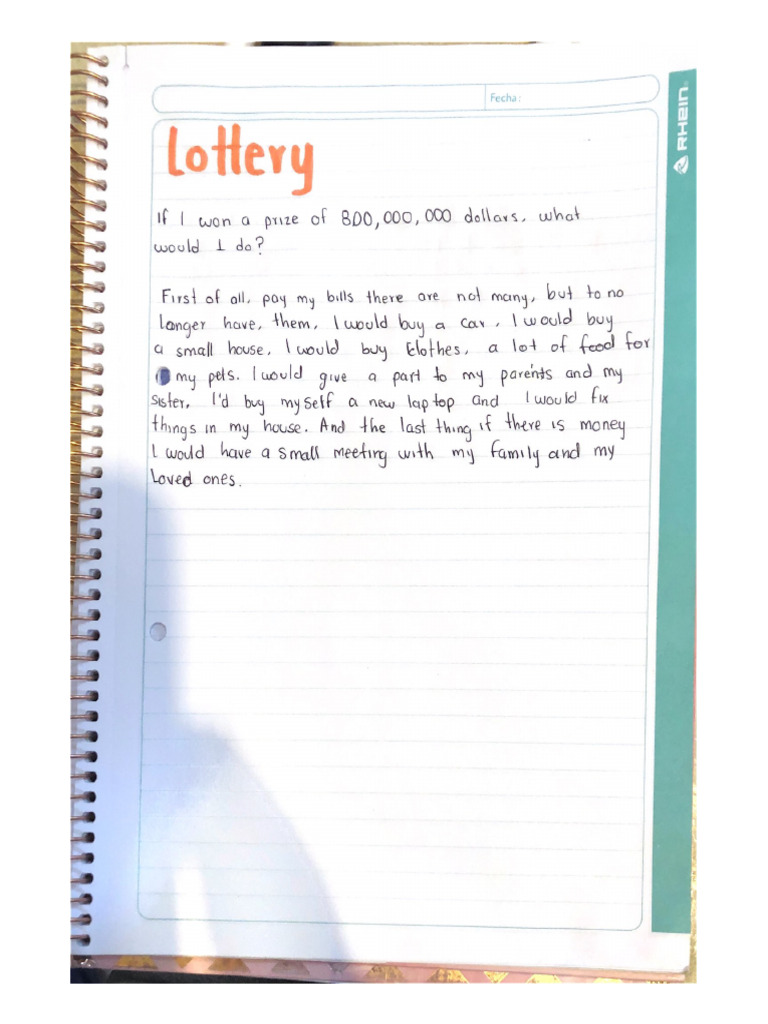 Fecha:
RHEIN
Lottery
If I won a prize of 800,000,000 dollars, what
would I do?
First of all, pay my bills there are not many, but to no
longer have, them, I would buy a car, I would buy
a small house, I would buy Clothes, a lot of food for
my pets. I would give a part to my parents and my
sister, I'd buy myself a new laptop and I would fix
things in my house. And the last thing if there is money
I would have a small meeting with my family and my
loved ones.